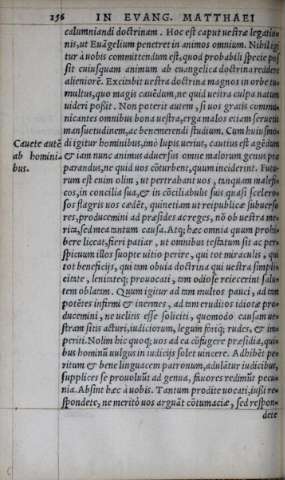 256 IN EVANG. MATTHAEI
calumniandi doctrinam. Hoc est caput uestræ legatio
nis, ut Euāgelium penetret in animos omnium. Nihil igi
tur à uobis committendum est, quod probabili specie pos
sit cuiusquam animum ab euangelica doctrina reddere
alieniorē. Excindit uestra doctrina magnos in orbe tu-
multus, quo magis cauēdum, ne quid uestra culpa natum
uideri possit. Non poterit autem, si uos gratis commu-
nicantes omnibus bona uestra, erga malos etiam seruetis
mansuetudinem, ac benemerendi studium. Cum huiusmo
Cauete autē
ab homini-
bus.
di igitur hominibus, imò lupis uerius, cautius est agēdum
& iam nunc animus aduersus omne malorum genus præ
parandus, ne quid uos cōturbent, quum inciderint. Futu-
rum est enim olim, ut pertrahant uos, tanquam malefi-
cos, in concilia sua, & in cōciliabulis suis quasi scelero-
sos flagris uos cædēt, quinetiam ut reipublicæ subuerso
res, producemini ad præsides ac reges, nō ob uestra me-
rita, sed mea tantum causa. Atq; hæc omnia quum prohi-
bere liceat, fieri patiar, ut omnibus testatum sit ac per-
spicuum illos suopte uitio perire, qui tot miraculis, qui
tot beneficijs, qui tam obuia doctrina qui uestra simplici
citate, lenitateq; prouocati, tam odiose reiecerint salu-
tem oblatam. Quum igitur ad tam multos pauci, ad tam
potētes infirmi & inermes, ad tam eruditos idiotæ pro-
ducemini, ne uelitis esse soliciti, quomodo causam ue-
stram sitis acturi, iudiciorum, legum foriq; rudes, & im-
periti. Nolim hic quoq; uos ad ea cōfugere præsidia, qui-
bus hominū uulgus in iudicijs solet uincere. Adhibēt pe-
ritum & bene linguacem patronum, adulātur iudicibus,
supplices se prouoluūt ad genua, fauores redimūt pecu-
nia. Absint hæc à uobis. Tantum prodite uocati, iussi re-
spondete, ne meritò uos arguāt cōtumaciæ, sed respon-
dete